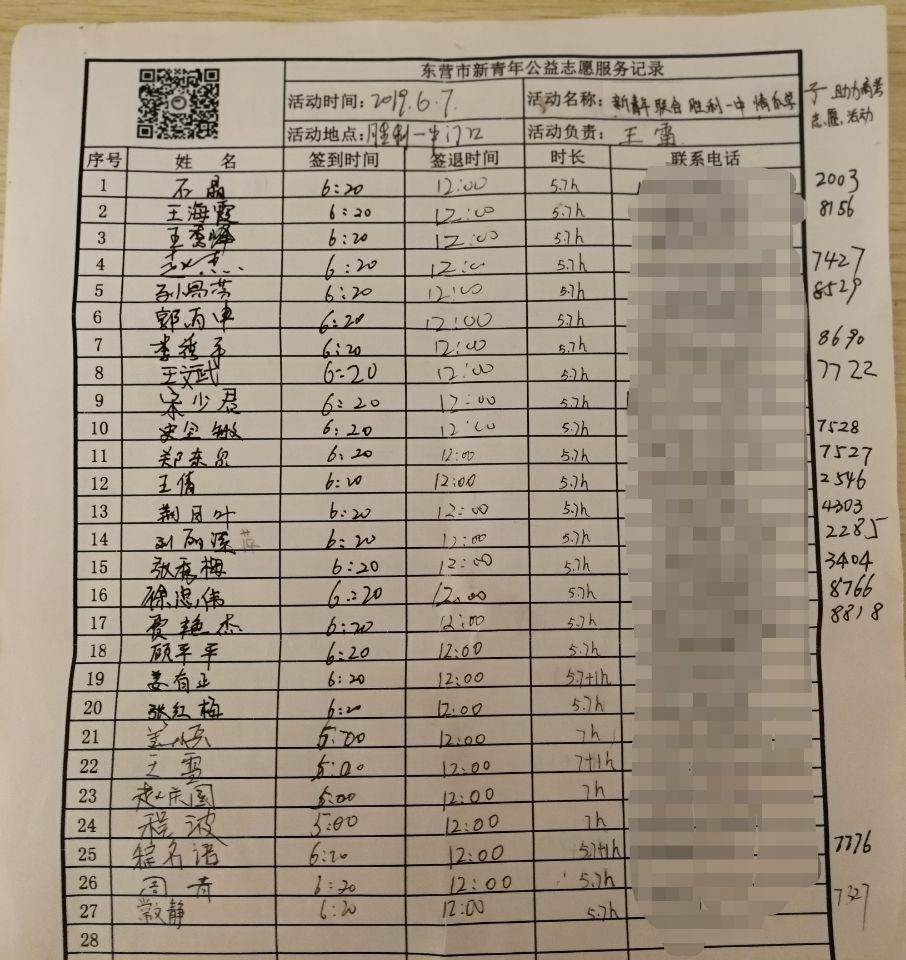 东营市新青年公益志愿服务记录
活动时间: 2019.6.7. 活动名称: 新青年联合胜利一中情系学子助力高考
志愿活动
活动地点: 胜利一中门口 活动负责: 王雷
序号 姓 名 签到时间 签退时间 时长 联系电话
1 石晶 6:20 12:00 5.7h 2003
2 王海霞 6:20 12:00 5.7h 8156
3 6:20 12:00 5.7h
4 6:20 12:00 5.7h 7427
5 6:20 12:00 5.7h 8529
6 6:20 12:00 5.7h
7 6:20 12:00 5.7h 8690
8 王文武 6:20 12:00 5.7h 7722
9 宋少君 6:20 12:00 5.7h
10 史全敏 6:20 12:00 5.7h 7528
11 郑东泉 6:20 12:00 5.7h 7527
12 王倩 6:20 12:00 5.7h 2546
13 荆月叶 6:20 12:00 5.7h 4303
14 6:20 12:00 5.7h 2285
15 张春梅 6:20 12:00 5.7h 3404
16 徐忠伟 6:20 12:00 5.7h 8766
17 贾艳杰 6:20 12:00 5.7h 8818
18 顾平平 6:20 12:00 5.7h
19 姜有正 6:20 12:00 5.7+1h
20 张红梅 6:20 12:00 5.7h
21 5:00 12:00 7h
22 王雪 5:00 12:00 7+1h
23 赵庆国 5:00 12:00 7h
24 程波 5:00 12:00 7h
25 6:20 12:00 5.7+1h 7776
26 周青 6:20 12:00 5.7h
27 常静 6:20 12:00 5.7h 7327
28